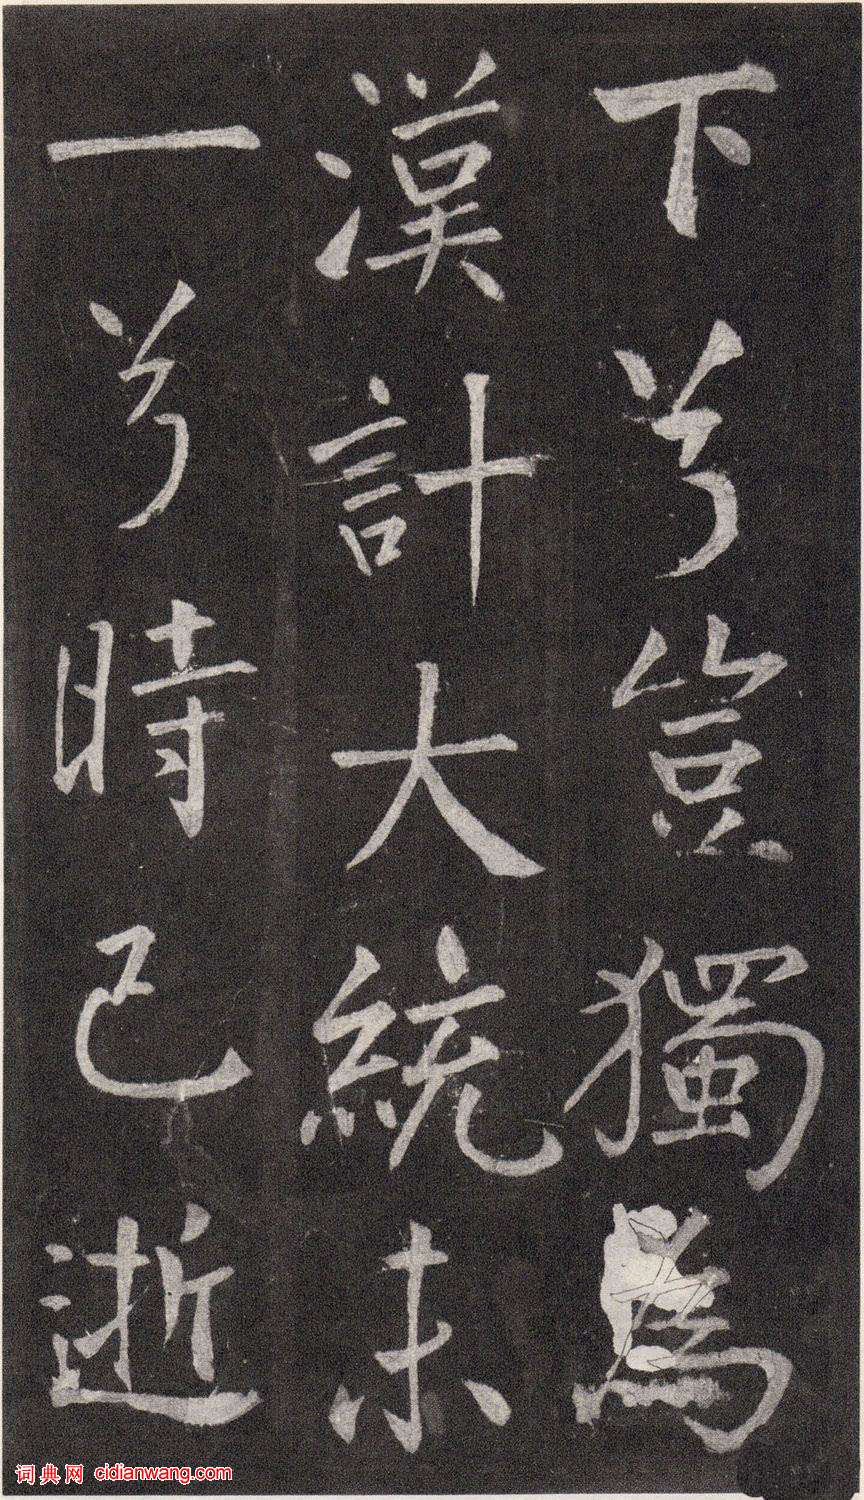 下兮豈獨為
漢計大統未
一兮時已逝
词典网 cidianwang.com